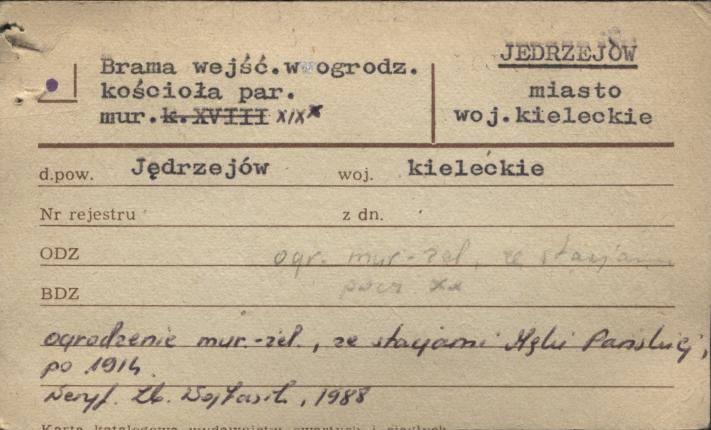 Brama wejść.w ogrodz.
kościoła par.
mur.k.XVIII XIX
JĘDRZEJÓW
miasto
woj.kieleckie
d.pow. Jędrzejów woj. kieleckie
Nr rejestru z dn.
ODZ ogr. mur.-żel. ze stacjami
BDZ pocz XX
ogrodzenie mur.-żel., ze stacjami Męki Pańskiej,
po 1914.
Weryf. Zb. Wojtasik, 1988
Karta katalogowa wydawnictw zwartych i ciągłych